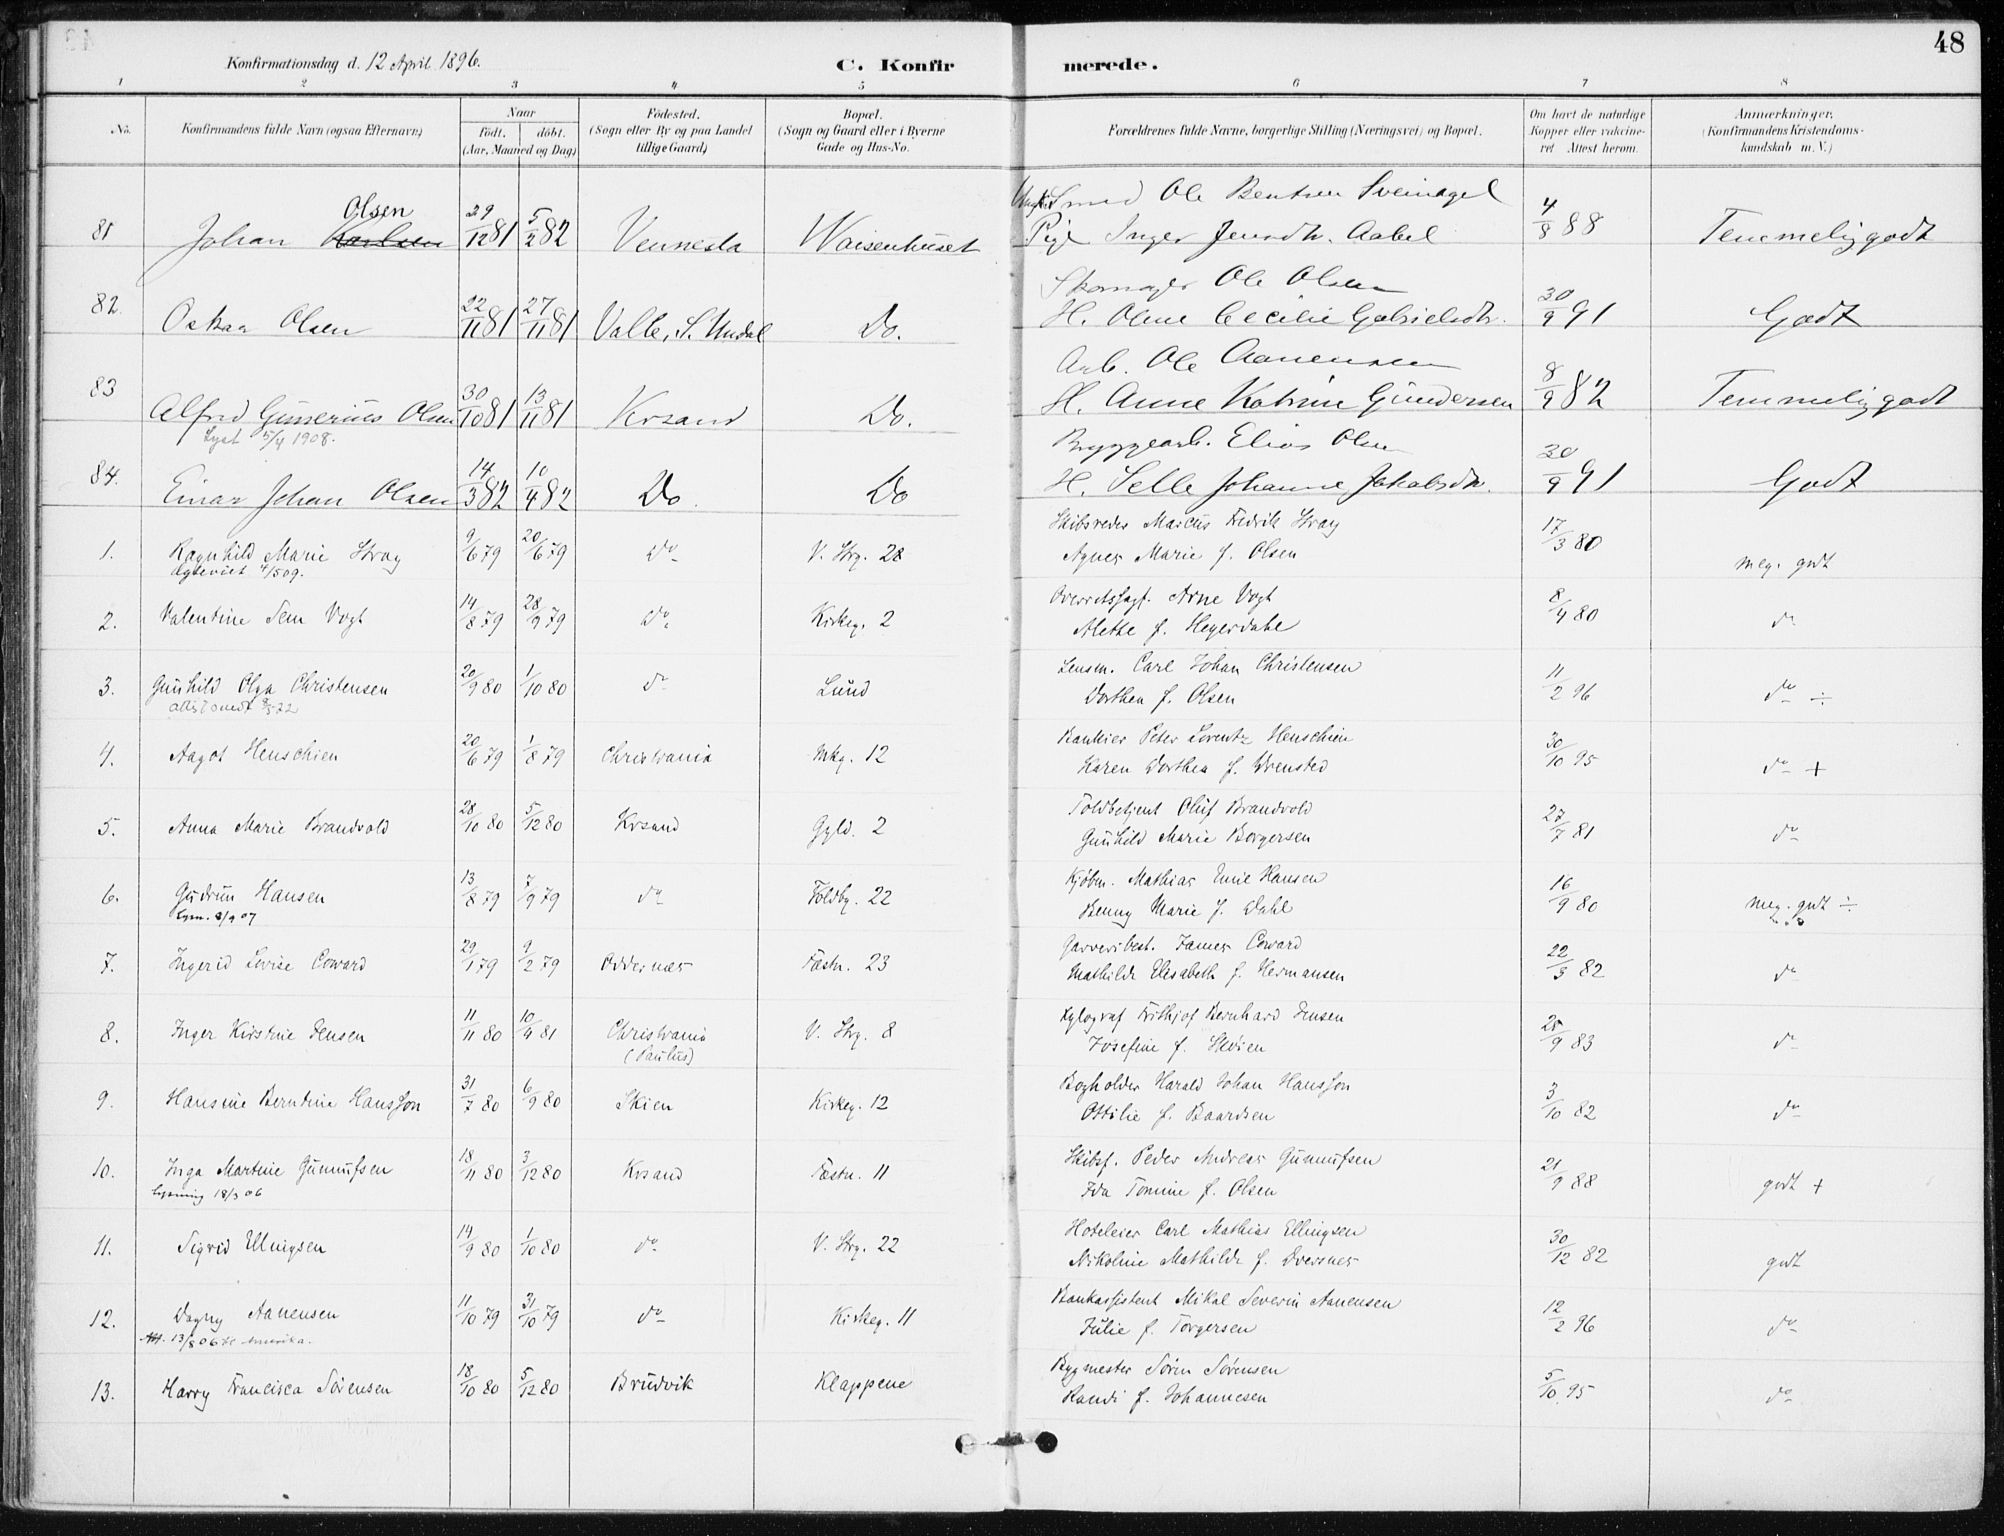 48
Konfirmationsdag d. 12 April 1896.
C. Konfirmerede.
1 2 3 4 5 6 7 8
No.
Konfirmandens fulde Navn (ogsaa Efternavn)
Naar
födt. döbt.
(Aar, Maaned og Dag)
Födested.
(Sogn eller By og paa Landet
tillige Gaard)
Bopæl.
(Sogn og Gaard eller i Byerne
Gade og Hus-No.
Forældrenes fulde Navne, borgerlige Stilling (Næringsvei) og Bopæl.
Om havt de naturlige
Kopper eller vakcine-
ret Attest herom.
Anmærkninger.
(Konfirmandens Kristendoms-
kundskab m. V.)
Olsen
81 Johan Karlsen 29/12 81 5/2 82 Vennesla Waisenhuset
Smed Ole Bentsen Sveinagel
Pige Inger Jensdtr. Aabel 4/8 88 Temmelig godt
82. Oskar Olsen 22/11 81 27/11 81 Valle, S. Undal Do.
Skomager Ole Olsen
H. Olene Cecilie Gabrielsdtr. 30/9 91 Godt
83 Alfred Gunerius Olsen 30/10 81 13/11 81 Krsand Do.
Lyst 5/4 1908.
Arb. Ole Aanensen
H. Anne Katrine Gundersen 8/9 82 Temmelig godt
84. Einar Johan Olsen 14/3 82 10/4 82 Do. Do
Bryggearb. Elias Olsen
H. Selle Johanne Jakobsdtr. 30/9 91 Godt
1. Ragnhild Marie Stray 9/6 79 20/6 79 Do V. Strg. 28
Ægteviet 4/5 09.
Skibsreder Marcus Fredrik Stray
Agnes Marie f. Olsen 17/3 80 meg. godt
2. Valentine Sem Vogt 14/8 79 28/9 79 Do. Kirkeg. 2
Overretssagf. Arne Vogt
Alette f. Heyerdahl 8/4 80 do
3. Gunhild Olga Christensen 20/9 80 1/10 80 do Lund
Lensm. Carl Johan Christensen
Dorthea f. Olsen 11/2 96 do ÷
4. Aagot Henschien 20/6 79 1/8 79 Christiania Mkg. 12
Bankier Peter Lorentz Henschien
Karen Dorthea f. Wrensted 30/10 95 do +
5. Anna Marie Brandvold 28/10 80 5/12 80 Krsand Gyld. 2
Toldbetjent Oluf Brandvold
Gunhild Marie Borgersen 27/7 81 do
6. Gudrun Hansen 13/8 79 7/9 79 do Toldbg. 22
Lysn. 3/9 07
Kjøbm. Mathias Emil Hansen
Benny Marie f. Dahl 16/9 80 meg. godt ÷
7. Ingerid Lovise Coward 29/1 79 9/2 79 Oddernæs Fæstn. 23
Garveribest. James Coward
Mathilde Elisabeth f. Hermansen 22/3 82 do
8. Inger Kirstine Jensen 11/11 80 10/4 81 Christiania V. Strg. 8
(Paulus)
Xylograf Frithjof Bernhard Jensen
Josefine f. Steiien 28/9 83 do
9. Hansine Berntine Hansson 31/7 80 6/9 80 Skien Kirkeg. 12
Bogholder Harald Johan Hansson
Ottilie f. Baardsen 3/10 82 do
10. Inga Martine Gunnufsen 18/11 80 3/12 80 Krsand Fæstn. 11
Lysning 18/3 06
Skibsf. Peder Andreas Gunnufsen
Ida Tomine f. Olsen 21/9 88 godt +
11. Sigrid Ellingsen 14/9 80 1/10 80 do V. Strg. 22
Hoteleier Carl Mathias Ellingsen
Nikoline Mathilde f. Dversnes 30/12 82 godt
12. Dagny Aanensen 11/10 79 31/10 79 do Kirkeg. 11
Att. 13/8 06 til Amerika.
Bankassistent Mikal Severin Aanensen
Julie f. Torgersen 12/2 96 do
13. Harry Francisca Sørensen 18/10 80 5/12 80 Brudvik Klappene
Bygmester Sørin Sørensen
Randi f. Johannesen 5/10 95 do